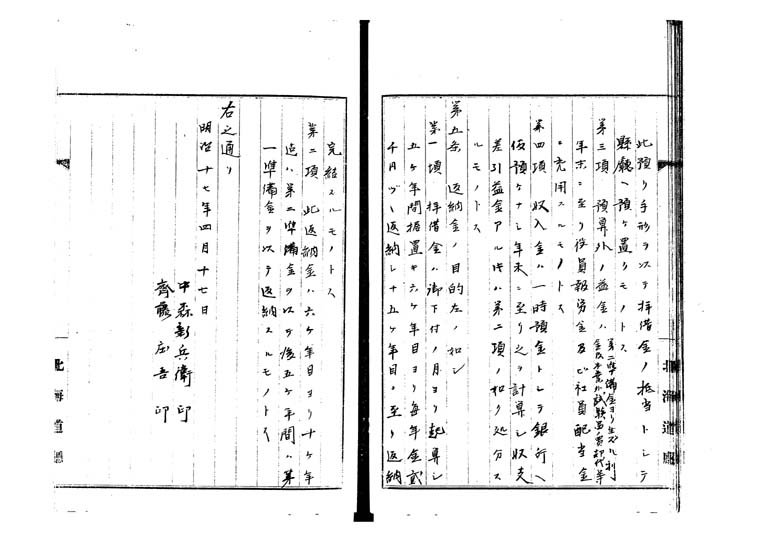 此預リ手形ヲ以テ拝借金ノ抵当トシテ
縣廳ヘ預ケ置クモノトス
第三項 預算外ノ益金ハ
第二準備金ヨリ生ズル利
年末ニ至リ役員報労金及ビ社員配当金
ニ充用スルモノトス
第四項 収入金ハ一時預金トシテ銀行ヘ
仮預ケナシ年末ニ至リ之ヲ計算シ収支
差引益金アル時ハ第二項ノ如ク処分ス
ルモノトス
第五条 返納金ノ目的左ノ如シ
第一項 拝借金ハ御下付ノ月ヨリ起算シ
五ケ年間据置キ六ケ年目ヨリ毎年金貳
千円ヅヽ返納シ十五ケ年目ニ至リ返納
北海道廳
完結スルモノトス
第二項 此返納金ハ六ケ年目ヨリ十ケ年
迄ハ第二準備金ヲ以テ後五ケ年間ハ第
一準備金ヲ以テ返納スルモノトス
右之通リ
明治十七年四月十七日
中森彰兵衛 印
齊藤庄吾 印
北海道廳